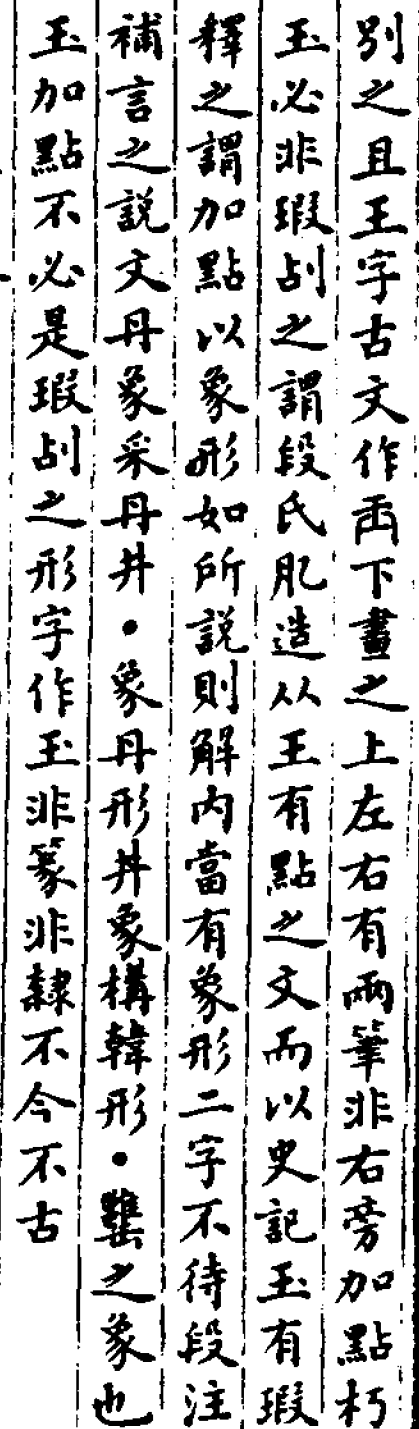 別之且王字古文作𠙻下畫之上左右有兩筆非右旁加點朽
玉必非瑕刮之謂段氏肊造从王有點之文而以史記玉有瑕
釋之謂加點以象形如所說則解內當有象形二字不待段注
補言之説文丹象采丹井●象丹形丼象構韓形●䍃之象也
玉加點不必是瑕刮之形字作玉非篆非隸不今不古